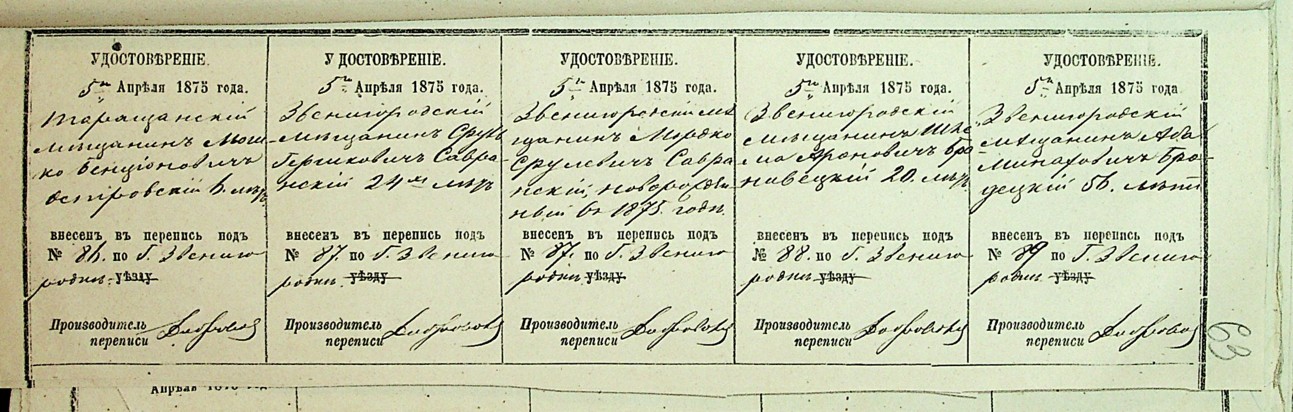 УДОСТОВѢРЕНІЕ.
5го Апрѣля 1875 года.
Таращанскій
мѣщанинъ Мош
ко Бенціоновичъ
Островскій 6. лѣтъ
внесенъ въ перепись подъ
№ 86. по г. Звениго
родкѣ уѣзду
Производитель
переписи
УДОСТОВѢРЕНІЕ.
5го Апрѣля 1875 года.
Звенигородскій
мѣщанинъ Сруль
Гершковичъ Савра
нскій 24хъ лѣтъ
внесенъ въ перепись подъ
№ 87. по г. Звениго
родкѣ уѣзду
Производитель
переписи
УДОСТОВѢРЕНІЕ.
5го Апрѣля 1875 года.
Звенигородскій мѣ
щанинъ Мордко
Срулевичъ Савра
нскій, новорожден
ный въ 1875. годѣ.
внесенъ въ перепись подъ
№ 87. по г. Звениго
родкѣ уѣзду
Производитель
переписи
УДОСТОВѢРЕНІЕ.
5го Апрѣля 1875 года.
Звенигородскій
мѣщанинъ
Ароновичъ
20. лѣтъ
внесенъ въ перепись подъ
№ 88. по г. Звениго
родкѣ уѣзду
Производитель
переписи
УДОСТОВѢРЕНІЕ.
5го Апрѣля 1875 года
Звенигородскій
мѣщанинъ Аба
Бро-
децкій 56. лѣтъ
внесенъ въ перепись подъ
№ 89 по г. Звениго
родкѣ уѣзду
Производитель
переписи
63
Апрѣля